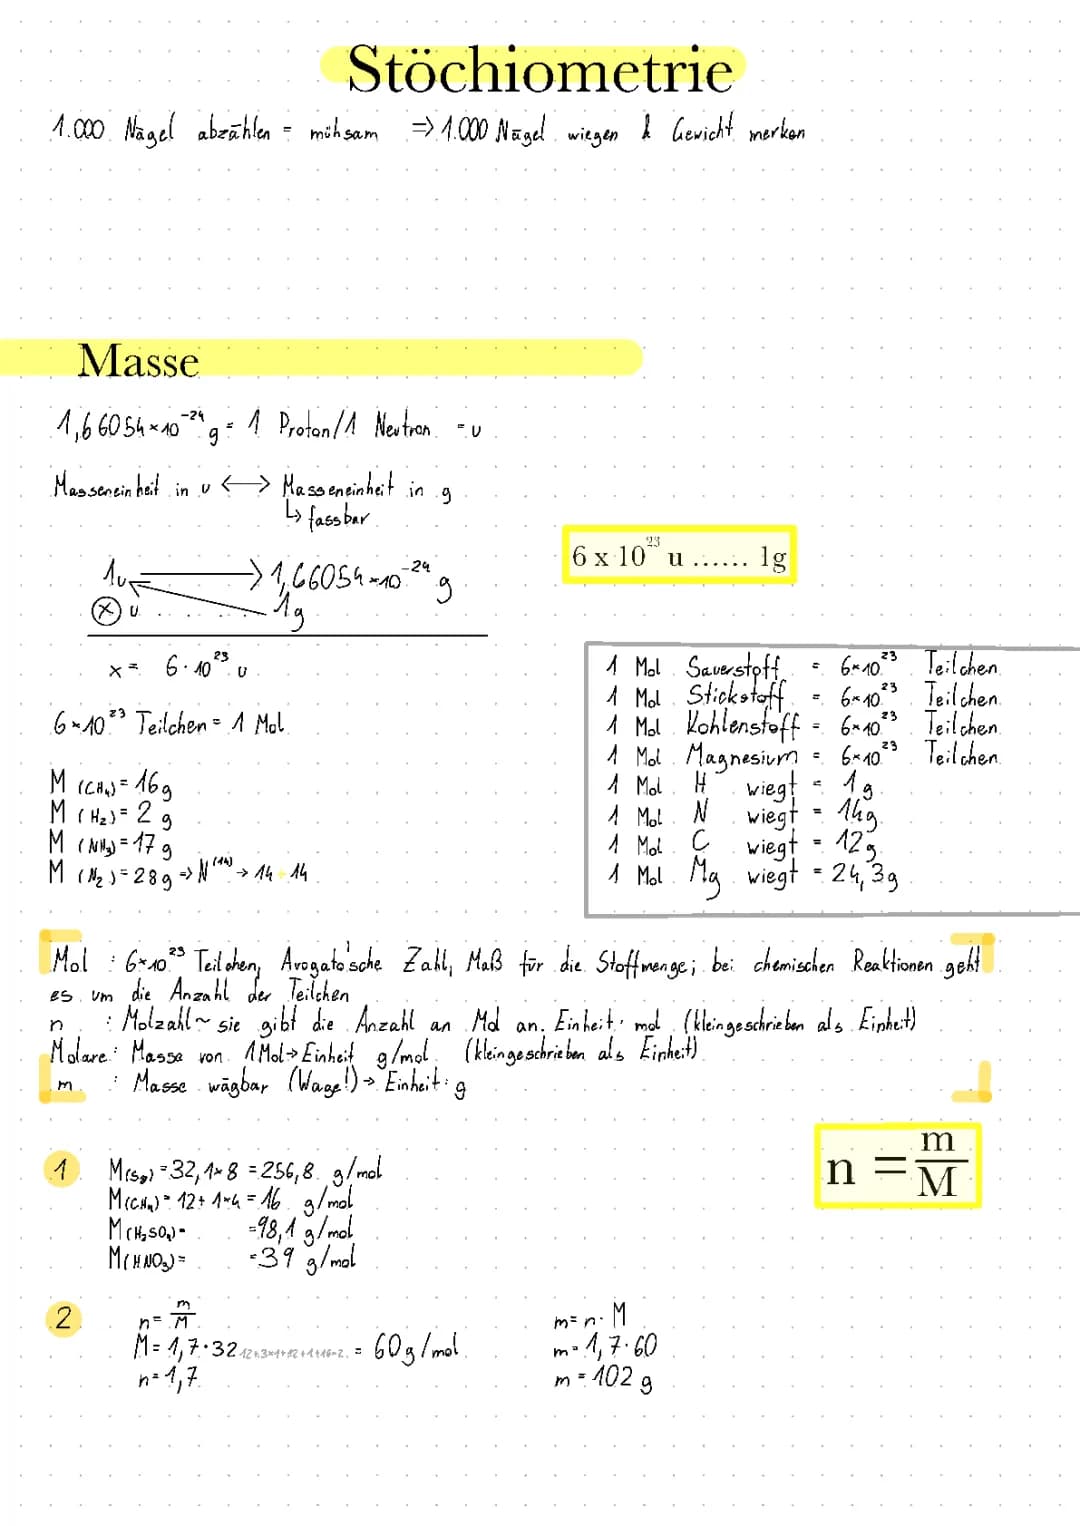 Stöchiometrie
1.000 Nägel abzählen = mühsam ⇒ 1.000 Nägel wiegen & Gewicht merken
Masse
1,66054×10⁻²⁴ g = 1 Proton/1 Neutron = u
Masseneinheit in u ⟷ Masseneinheit in g
↳ fassbar
6 x 10²³ u ...... 1g
1u ⟶ 1,66054×10⁻²⁴ g
ⓧ u ........ 1g
x = 6·10²³ u
6×10²³ Teilchen = 1 Mol
M (CH₄) = 16g
M (H₂) = 2 g
M (NH₃) = 17 g
M (N₂) = 28g ⇒ N⁽¹⁴⁾ → 14 + 14
1 Mol Sauerstoff = 6×10²³ Teilchen
1 Mol Stickstoff = 6×10²³ Teilchen
1 Mol Kohlenstoff = 6×10²³ Teilchen
1 Mol Magnesium = 6×10²³ Teilchen
1 Mol H wiegt = 1g
1 Mol N wiegt = 14g
1 Mol C wiegt = 12g
1 Mol Mg wiegt = 24,3g
Mol : 6×10²³ Teilchen, Avogato'sche Zahl, Maß für die Stoffmenge; bei chemischen Reaktionen geht
es um die Anzahl der Teilchen
n : Molzahl ~ sie gibt die Anzahl an Mol an. Einheit: mol (kleingeschrieben als Einheit)
Molare: Masse von 1 Mol → Einheit g/mol (kleingeschrieben als Einheit)
m : Masse wägbar (Wage!) → Einheit: g
n = m/M
1 M(S₈) = 32,1×8 = 256,8 g/mol
M(CH₄) = 12+1×4 = 16 g/mol
M(H₂SO₄) = =98,1 g/mol
M(HNO₃) = =39 g/mol
2 n = m/M
M = 1,7·32 12+3×1+12+1+16·2 = 60g/mol
n = 1,7
m = n·M
m = 1,7·60
m = 102 g